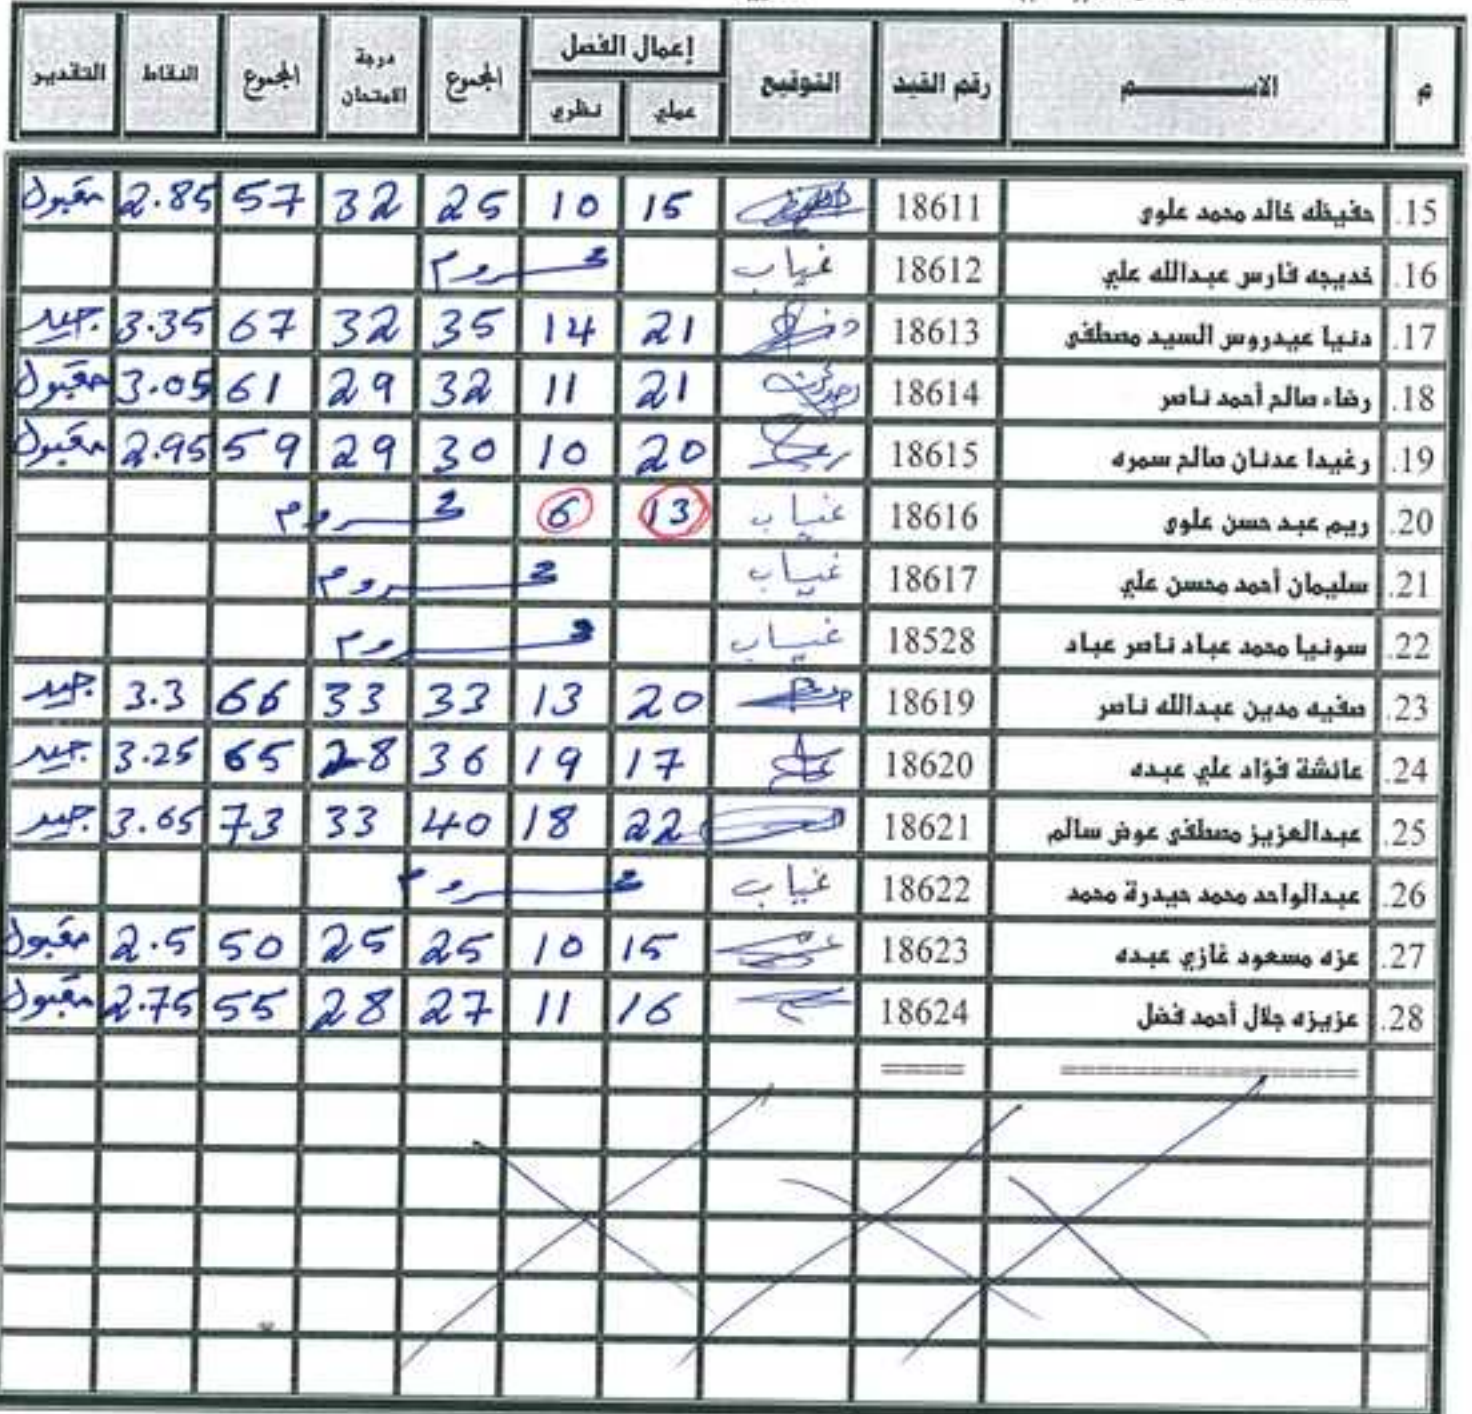 م الاســـــــــم رقم القيد التوقيع إعمال الفصل المجموع درجة الامتحان المجموع النقاط التقدير
عملي نظري
.15 حفيظه خالد محمد علوي 18611 15 10 25 32 57 2.85 مقبول
.16 خديجه فارس عبدالله علي 18612 غياب محـــروم
.17 دنيا عيدروس السيد مصطفى 18613 21 14 35 32 67 3.35 جيد
.18 رضاء صالح أحمد ناصر 18614 21 11 32 29 61 3.05 مقبول
.19 رغيدا عدنان صالح سمره 18615 20 10 30 29 59 2.95 مقبول
.20 ريم عبد حسن علوي 18616 غياب 13 6 محـــروم
.21 سليمان أحمد محسن علي 18617 غياب محـــروم
.22 سونيا محمد عباد ناصر عباد 18528 غياب محـــروم
.23 صفيه مدين عبدالله ناصر 18619 20 13 33 33 66 3.3 جيد
.24 عائشة فؤاد علي عبده 18620 17 19 36 28 65 3.25 جيد
.25 عبدالعزيز مصطفى عوض سالم 18621 22 18 40 33 73 3.65 جيد
.26 عبدالواحد محمد حيدرة محمد 18622 غياب محـــروم
.27 عزه مسعود غازي عبده 18623 15 10 25 25 50 2.5 مقبول
.28 عزيزه جلال أحمد فضل 18624 16 11 27 28 55 2.75 مقبول